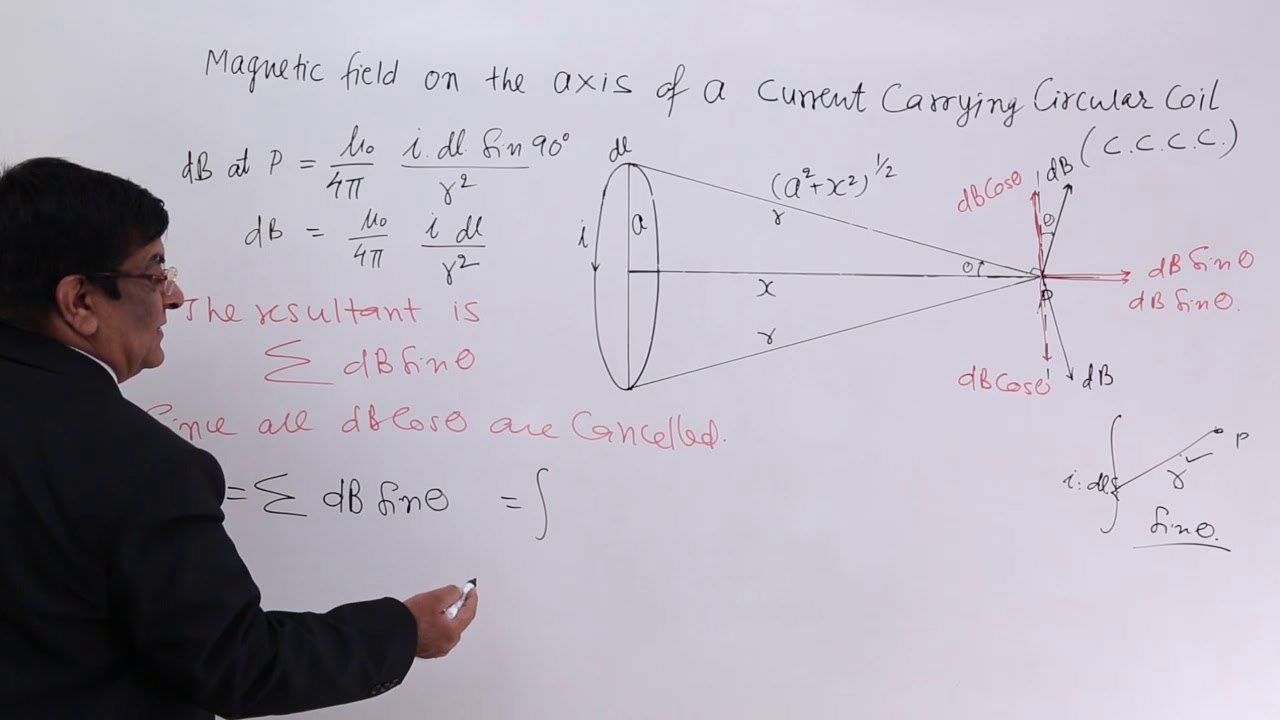 Magnetic field on the axis of a Current Carrying Circular Coil
(C.C.C.C.)
dB at P = μ₀/4π i.dl Sin 90°/r²
dB = μ₀/4π i dl/r²
The resultant is
Σ dB Sinθ
Since all dBCosθ are Cancelled.
= Σ dB Sinθ = ∫
dl
(a²+x²)^1/2
r
a
i
x
r
θ
dBCosθ
dB
θ
dB Sinθ
dB Sinθ.
θ
dBCosθ
dB
P
i.dl
r
Sinθ.